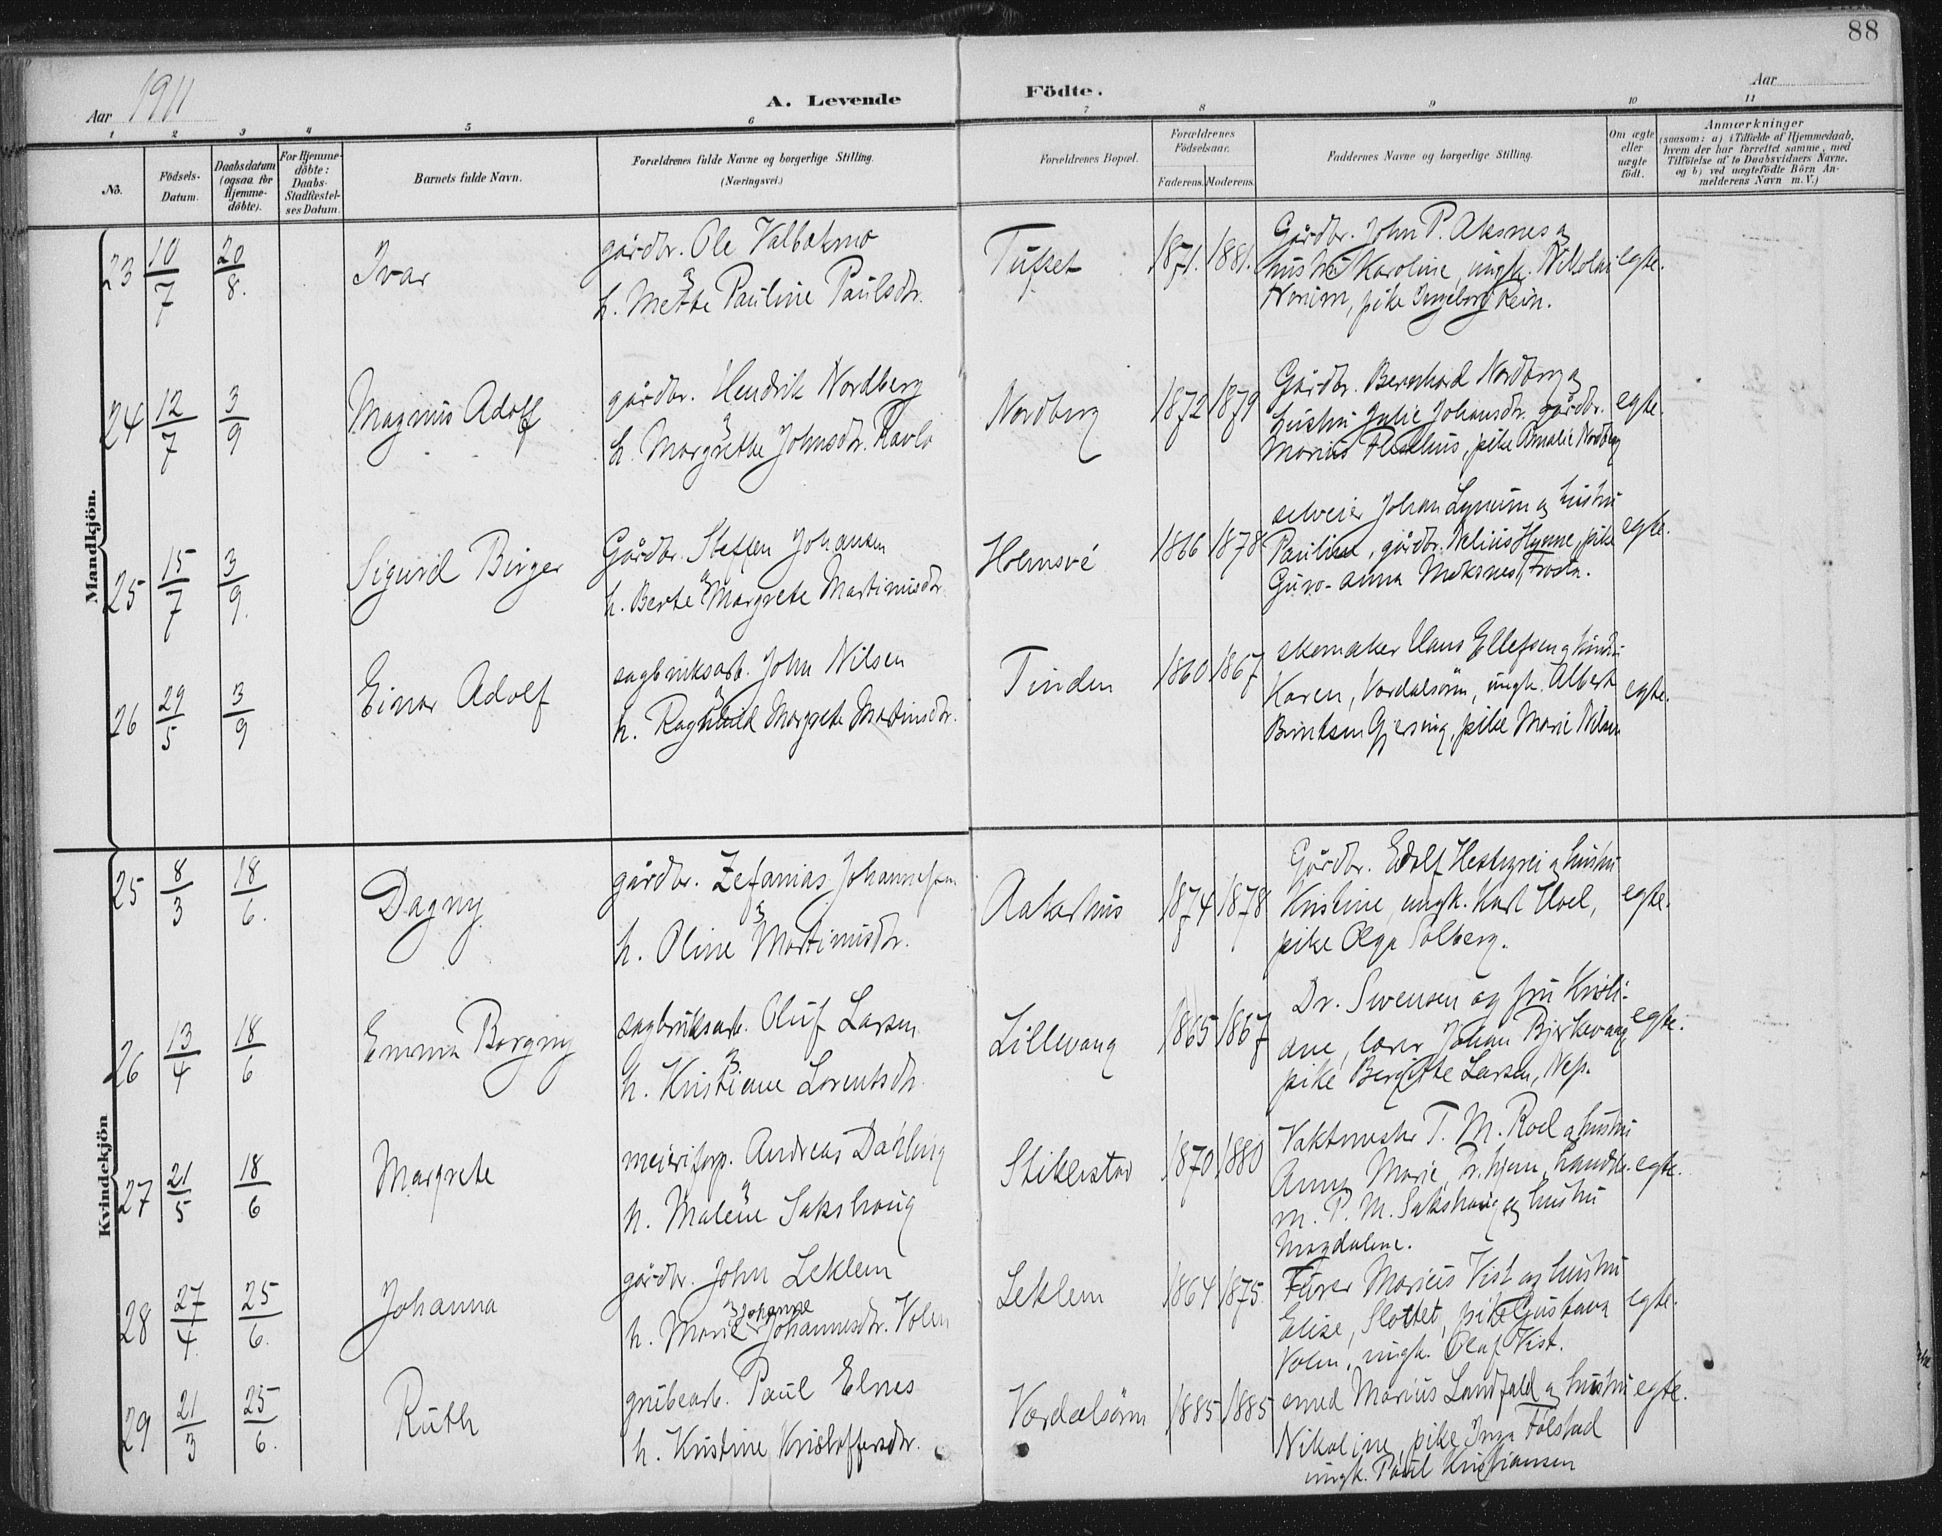 88
Aar 1911
A. Levende Födte.
Aar
1 2 3 4 5 6 7 8 9 10 11
No.
Födsels-Datum.
Daabsdatum (ogsaa for Hjemme-döbte).
For Hjemme-döbte: Daabs-Stadfæstel-ses Datum.
Barnets fulde Navn.
Forældrenes fulde Navne og borgerlige Stilling.
(Næringsvei.)
Forældrenes Bopæl.
Forældrenes Födselsaar.
Faderens. Moderens.
Faddernes Navne og borgerlige Stilling.
Om ægte eller uægte født.
Anmærkninger
(saasom: a) i Tilfælde af Hjemmedaab, hvem der har forrettet samme, med Tilföielse af to Daabsvidners Navne, og b) ved uægtefödte Börn An-melderens Navn m. V.)
Mandkjön.
23 10/7 20/8. Ivar
gårdbr. Ole Valbekmo
h. Mette Pauline Paulsdr.
Tufset 1871. 1881.
Gårdbr. John P. Aksnes og
hustru Karoline, ungk. Nikolai
pike Ingeborg Rein.
egte.
24 12/7 3/9 Magnus Adolf
gårdbr. Hendrik Nordberg
h. Margrethe Johnsdr. Kavlo
Nordberg 1872 1879
Gårdbr. Bernhard Nordberg og
hustru Julie Johansdr. gårdbr.
Marius pike Amalie Nordberg
egte.
25 15/7 3/9. Sigurd Birger
Gårdbr. Steffen Johansen
h. Berte Margrete Martinusdr.
Holmsvé 1866 1878
selveier Johan Lynum og hustru
Pauline, gårdbr. Nelius Hynne, pike
Guro-Anna
egte.
26 29/5 3/9 Einar Adolf
sagbruksarb. John Nilsen
h. Ragnhild Margrete Martinsdr.
Tinden 1860 1867
skomaker Hans Ellefsen og hustru
Karen, Værdalsören, ungk. Albert
Berntsen Gjersing, pike Marie Nilsen
egte.
Kvindekjön
25 8/3 18/6. Dagny
gårdbr. Zefanias Johannesen
h. Oline Martinusdr.
Aakerhus 1874 1878
Gårdbr. Edolf og hustru
Kristine, ungk. Karl Hoel,
pike Olga Solberg.
egte.
26 13/4 18/6 Emma Borgny
sagbruksarb. Oluf Larsen
h. Kristiane Lorentsdr.
Lillevang 1865 1867
Dr. Svensen og fru Kristi-
ane, lærer Johan Bjerkevang
pike Bergitte Larsen, Nes.
egte.
27 21/5 18/6 Margrete
meieriforp. Andreas Dahling
h. Malene Sakshaug
Stiklestad 1870 1880
Vaktmester T. M. Roel og hustru
Anna Marie, Tr.hjem, handels-
m. P. M. Sakshaug og hustru
Magdalene.
egte.
28 27/4. 25/6. Johanna
gårdbr. John Leklem
Johanne
h. Marie Johannesdr. Volen
Leklem 1864 1875
Furer Marius Vist og hustru
Elise, Slottet, pike Gustava
Volen, ungk. Olaf Vist.
egte.
29 21/3 25/6. Ruth
grubearb. Paul Elnes
h. Kristine Kristoffersdr.
Værdalsören 1885 1885
smed Marius Landfald og hustru
Nikoline, pike Inga Tolstad
ungk. Paul Kristiansen
egte.